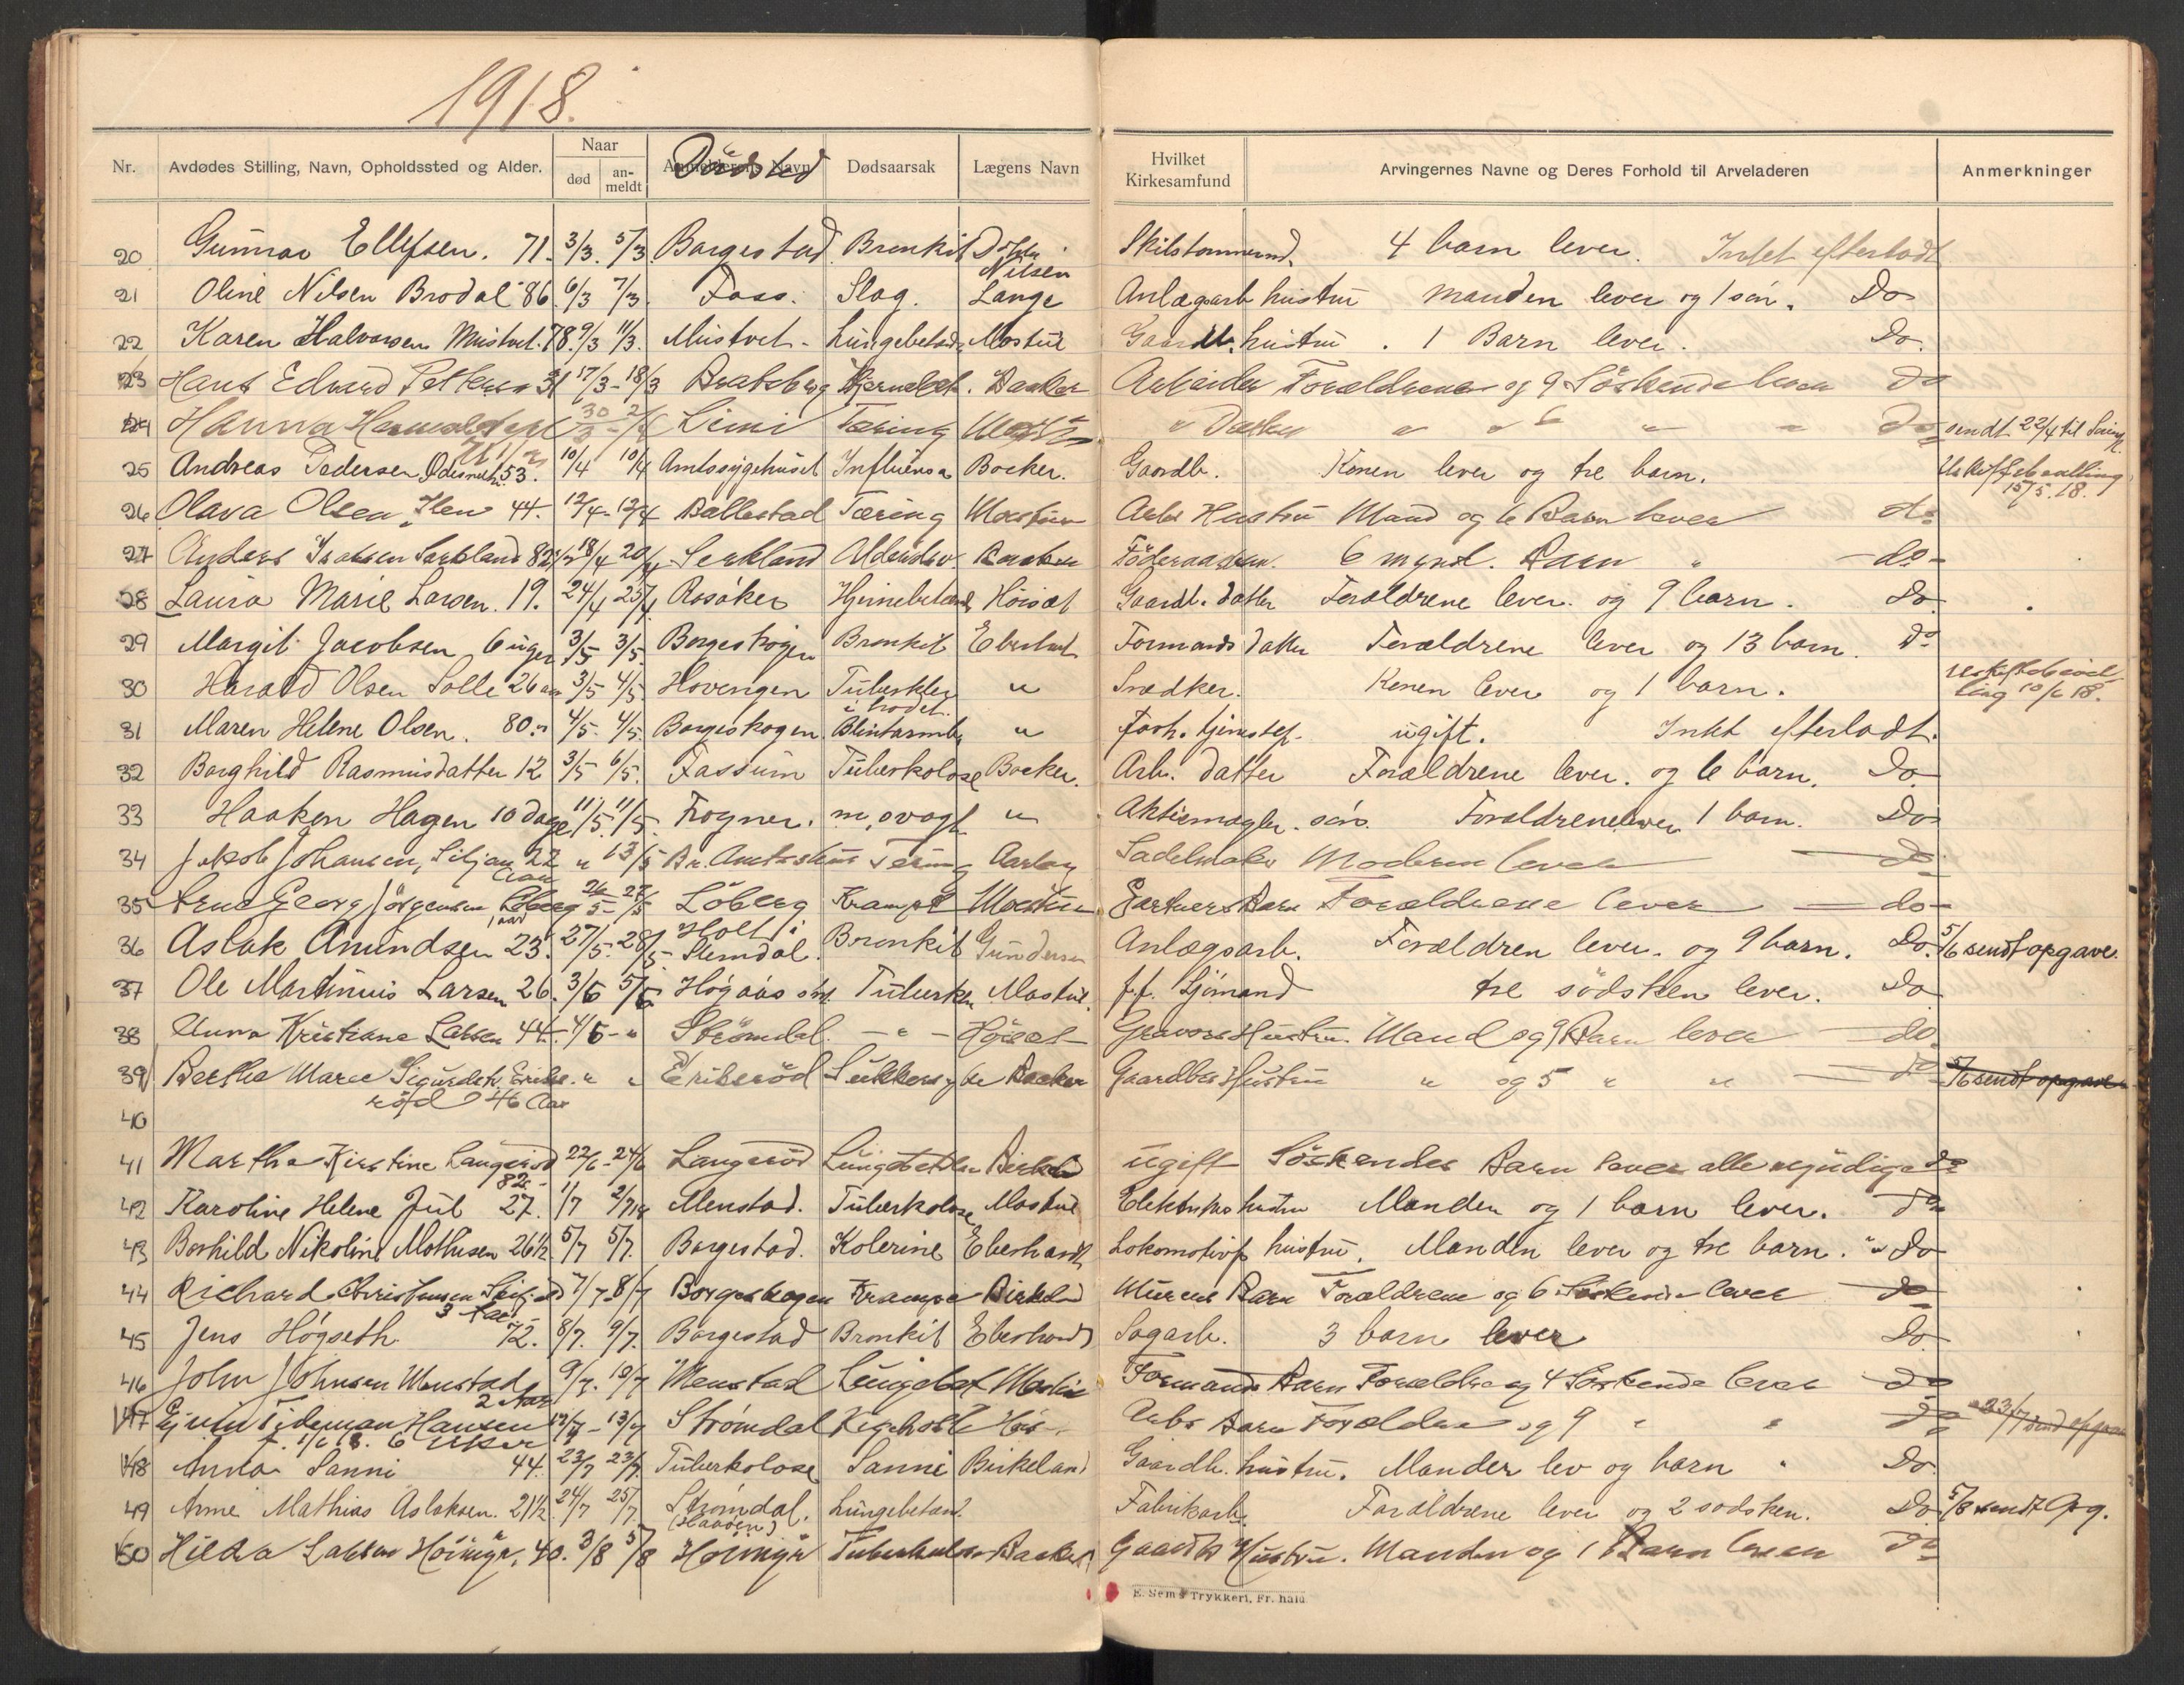 1918.
Nr. Avdødes Stilling, Navn, Opholdssted og Alder. Naar død an-meldt Anmelderens Navn Dödsted Dødsaarsak Lægens Navn Hvilket Kirkesamfund Arvingernes Navne og Deres Forhold til Arveladeren Anmerkninger
20 Gunnar Ellefsen. 71. 3/3. 5/3 Borgestad Bronkit Nilsen 4 barn lever. Intet efterladt
21 Oline Nilsen Brodal 86. 6/3 7/3. Foss. Slag. Lange Anlægsarb hustru manden lever og 1 sön. Do
22 Karen Halvorsen Mustvet. 78. 9/3 11/3. Mustvet Lungebetænd. Mostue Gaardb. hustru. 1 Barn lever. Do.
23 Hans Edvard Pettersen 31 17/3 - 18/3 Bratsberg Hjernebet. Backer Arbeider Forældrene og 9 Söskende lever do
24 Hanna 30/3 2/4 Limi Tæring " Datter " " 6 " " do sendt 22/4 til
25 Andreas Pedersen 53. 10/4 10/4 Amtssygehuset Influensa Bocker. Gaardb. Konen lever og tre barn. Uskiftebevilling 15/5.18.
26 Olava Olsen, Flen 44. 12/4 - 12/4 Ballestad Tæring Moestue Arb Hustru Mand og 6 Barn lever do
27 Anders Isaksen Serkland 82 18/4 20/4 Serkland Alderdom Backer Föderaadsm. 6 mynd. Barn " do
28 Laura Marie Larsen. 19. 24/4 25/4 Rosåker Hjernebetænd Höisæt Gaardb. datter Forældrene lever. og 9 barn. do.
29 Margit Jacobsen 6 uger 3/5 3/5. Borgeskogen Bronkit Eberhart Formands datter Forældrene lever og 13 barn. do
30 Harald Olsen Solli 26 aar 3/5 4/5. Hovengen Tuberkler i hodet. " Snedker. Konen lever og 1 barn. uskiftebevilling 10/6 18.
31 Maren Helene Olsen. 80. 4/5. 4/5. Borgeskogen. Blintarmb. " forh. tjenstep. ugift. Intet efterladt.
32 Borghild Rasmusdatter 12 3/5 6/5. Fossum Tuberkolose Bocker. Arb. datter Forældrene lever. og 6 barn. Do
33 Haaken Hagen 10 dage 11/5. 11/5. Frogner. m, svagh " Aktiemægler. sön. Forældrene lever 1 barn. Do
34 Jakob Johansen, Siljan 22 Aar " 13/5 Br. Amtsskhus Tæring Sadelmaker Moderen lever do.
35 Arne Georg Jörgensen Löberg 1 aar 26/5 27/5 Löberg Krampe Moestue Gartners Barn Forældrene lever do
36 Aslak Anundsen 23. 27/5. 28/5 Holt i Slemdal. Bronkit Gundersen Anlægsarb. Forældren lever. og 9 barn. Do. 5/6 sendt opgave.
37 Ole Martinius Larsen 26. 3/6 5/6 Högaas Tuberk Mostue f.f. Sjömand tre södsken lever. Do
38 Anna Kristiane Larsen 44. 4/6 " Strömdal. - " - Höisæt Gravors Hustru. Mand og 9 Barn lever do.
39 Berthe Marie Sigurdsdt. Eriksröd 46 Aar " " Eriksröd Sukkersyke Backer Gaardbr Hustru " og 5 " " do 5/6 sendt opgave
40
41 Martha Kirstine Langeröd 82. 22/6 - 24/6 Langeröd Lungebetæn Birkeld ugift Söskendes Barn lever alle myndige do
42 Karoline Helene Jul 27. 1/7 2/7 18 Menstad. Tuberkolose Mostue Elektrikers hustru Manden og 1 barn lever. do
43 Borhild Nikoline Mathisen 26 1/2 5/7 5/7. Borgestad. Kolerine Eberhardt Lokomotivf hustru. Manden lever og tre barn. " Do
44 Richard Christensen 3 Aar 7/7 - 8/7 Borgeskogen Krampe Birkeld Murers Barn Forældrene og 6 Söskende lever do
45 Jens Högseth 72. 8/7. 9/7. Borgestad Bronkit Eberhard Sagarb. 3 barn lever Do
46 John Johnsen Menstad 2 Aar 9/7. - 10/7 Menstad Lungebet Mostue Formands Barn Forældre og 4 Söskende lever do
47 Ejvin Tideman Hansen f. 1/6 18. 6 Uker 12/7 - 13/7 Strömdal Kighoste Höis Arbs Barn Forældre og 9 " " do 23/7 send opgave
48 Anna Sanni 44. 23/7 23/7. Tuberkolose Sanni Birkeland Gaardb. hustru. Manden lev og barn " Do.
49 Arne Mathias Aslaksen. 21 1/2. 24/7 25/7. Strömdal. (Haaven) Lungebetænd. Fabrikarb. Forældrene lever og 2 sodsken. Do. 5/8 sendt Opg.
50 Hilda Larsen Höinge, 40. 3/8 5/8 Höinge Tuberkulose Backer Gaardb Hustru. Manden og 1 Barn lever do
E. Sem's Trykkeri, Fr.hald